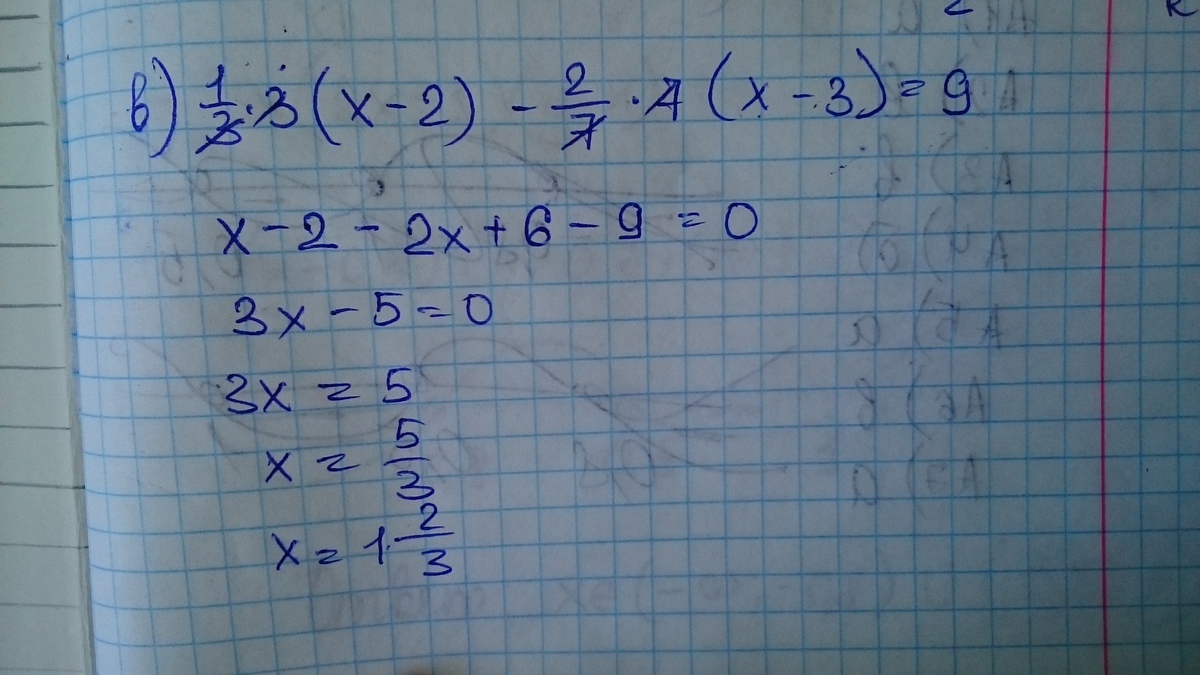 в) 1/3 · 3 (x - 2) - 2/7 · 7 (x - 3) = 9
x - 2 - 2x + 6 - 9 = 0
3x - 5 = 0
3x = 5
x = 5/3
x = 1 2/3